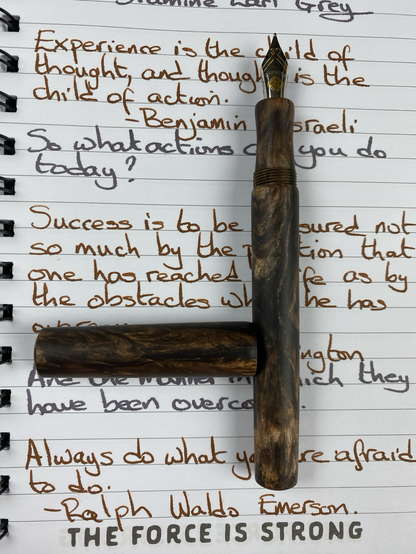 Diamine Earl Grey
Experience is the child of
thought, and thought is the
child of action.
-Benjamin sraeli
So what actions you do
today?
Success is to be sured not
so much by the tion that
one has reached ife as by
the obstacles wh he has
ington
Are the manner in which they
have been overco
Always do what yo are afraid
to do.
-Ralph Waldo Emerson.
THE FORCE IS STRONG